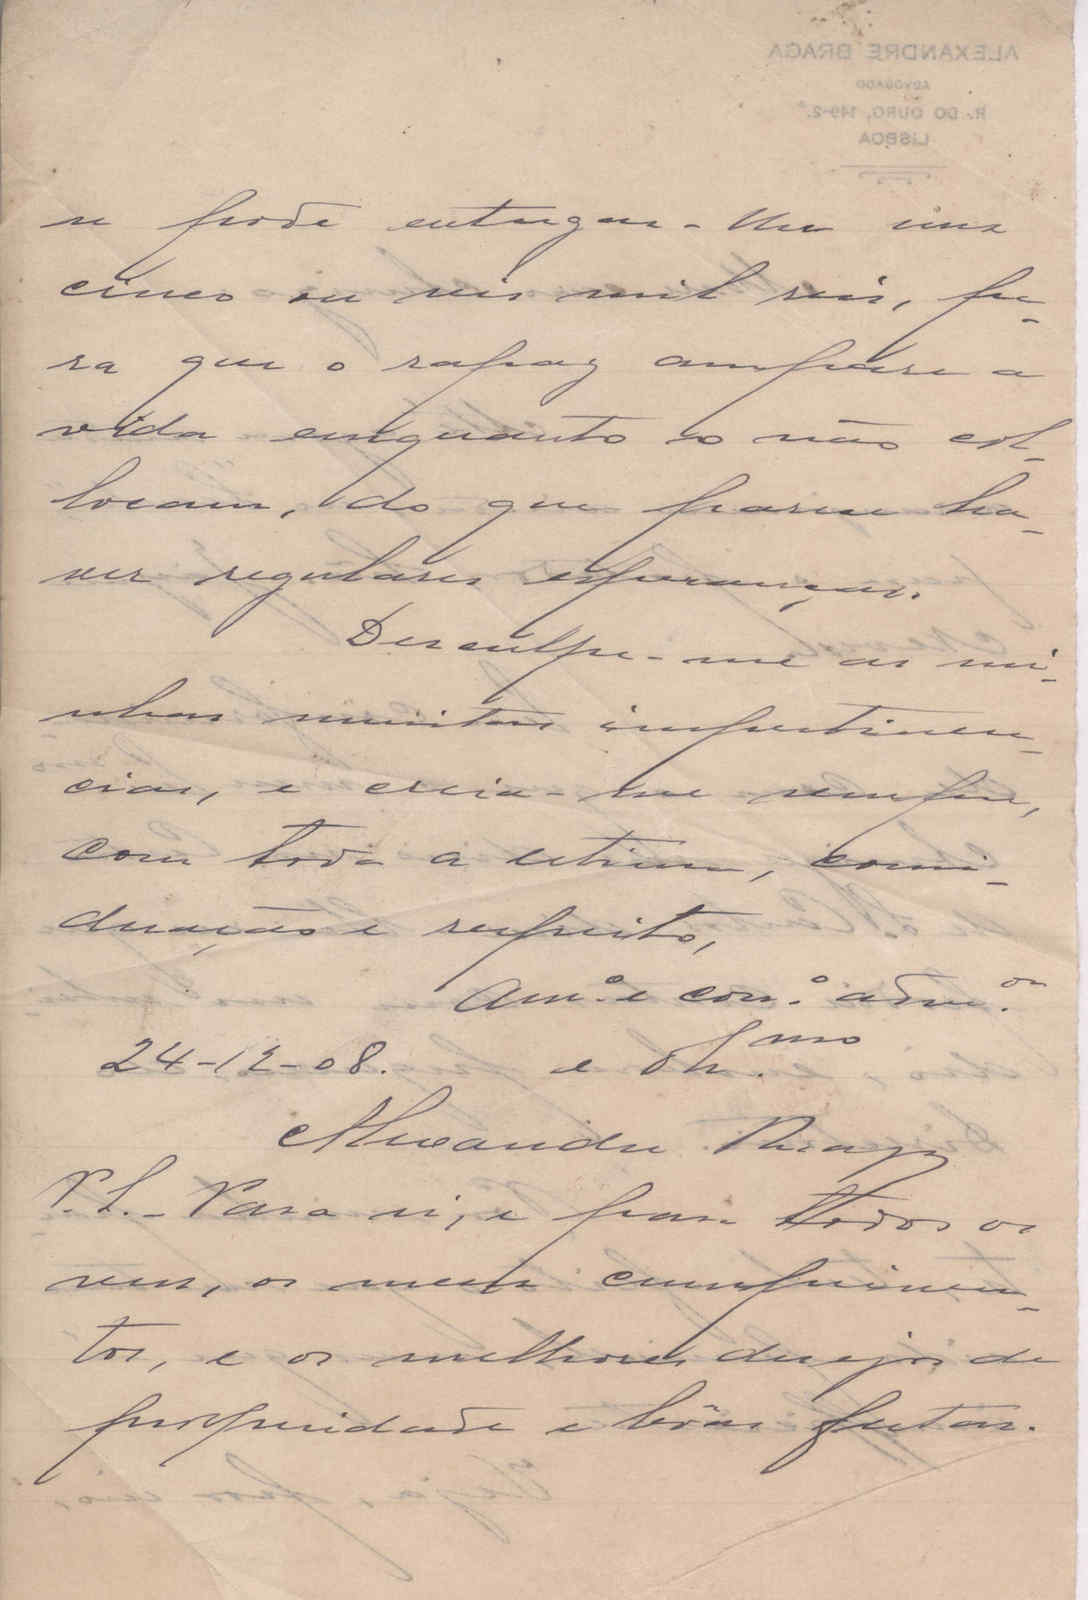 ALEXANDRE BRAGA
ADVOGADO
R. DO OURO, 149-2.º
LISBOA
se pode entregar-me uns
cinco ou seis mil reis, pa-
ra que o rapaz ampare a
vida emquanto o não col-
locam, do que parece ha-
ver regulares esperanças.
Desculpe-me as mi-
nhas muitas impertinen-
cias, e creia-me sempre,
com toda a estima, consi-
deração e respeito,
Am.º e corr.º adm.or
24-12-08. e obr.mo
Alexandre Braga
P.S.- Para si, e para todos os
seus, os meus cumprimen-
tos, e os melhores desejos de
prosperidade e bôas festas.
Veja, por isso,